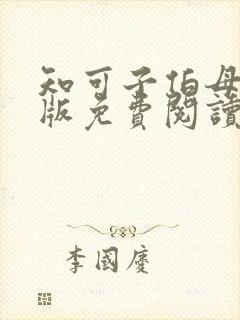 知可子伯母
版免費閱讀
李國慶